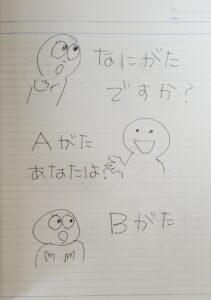 なにがた
ですか？
Aがた
あなたは？
Bがた